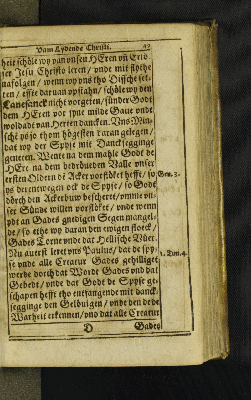 Vam Lydende Christi.
heit schöle wy van vnsen HEren vñ Erlö
ser Jesu Christo leren / vnde mit flythe
nafolgen / wenn wy vns tho Dissche set-
ten / effte daruan vpstahn / schöle wy den
Lauesanck nicht vorgeten / sünder Godt
dem HEren vor syne milde Gaue vnde
woldadt van Herten dancken. Vns Min-
schē ys jo thom högesten daran gelegen /
dat wy der Spyse mit Dancksegginge
geneten. Wente na dem mahle Godt de
HEre na dem bedröueden Valle vnser
ersten Oldern dē Acker vorflöket hefft / so Gen. 3.
ys derentwegen ock de Spyse / so Godt
dörch den Ackerbuw bescheret / vmme vn-
ser Sünde willen vorflöket / vnde wenn
ydt an Gades gnedigen Segen mangel-
de / so ethe wy daran den ewigen floeck /
Gades Torne vnde dat Hellische Vüer.
Nu auerst leret vns Paulus / dat de spy- 1. Tim. 4.
se vnde alle Creatur Gades gehilliget
werde dorch dat Wordt Gades vnd dat
Gebedt / vnde dat Godt de Spyse ge-
schapen hefft tho entfangende mit danck-
segginge den Gelöuigen / vnde den de de
Warheit erkennen / vnd dat alle Creatur
D Gades